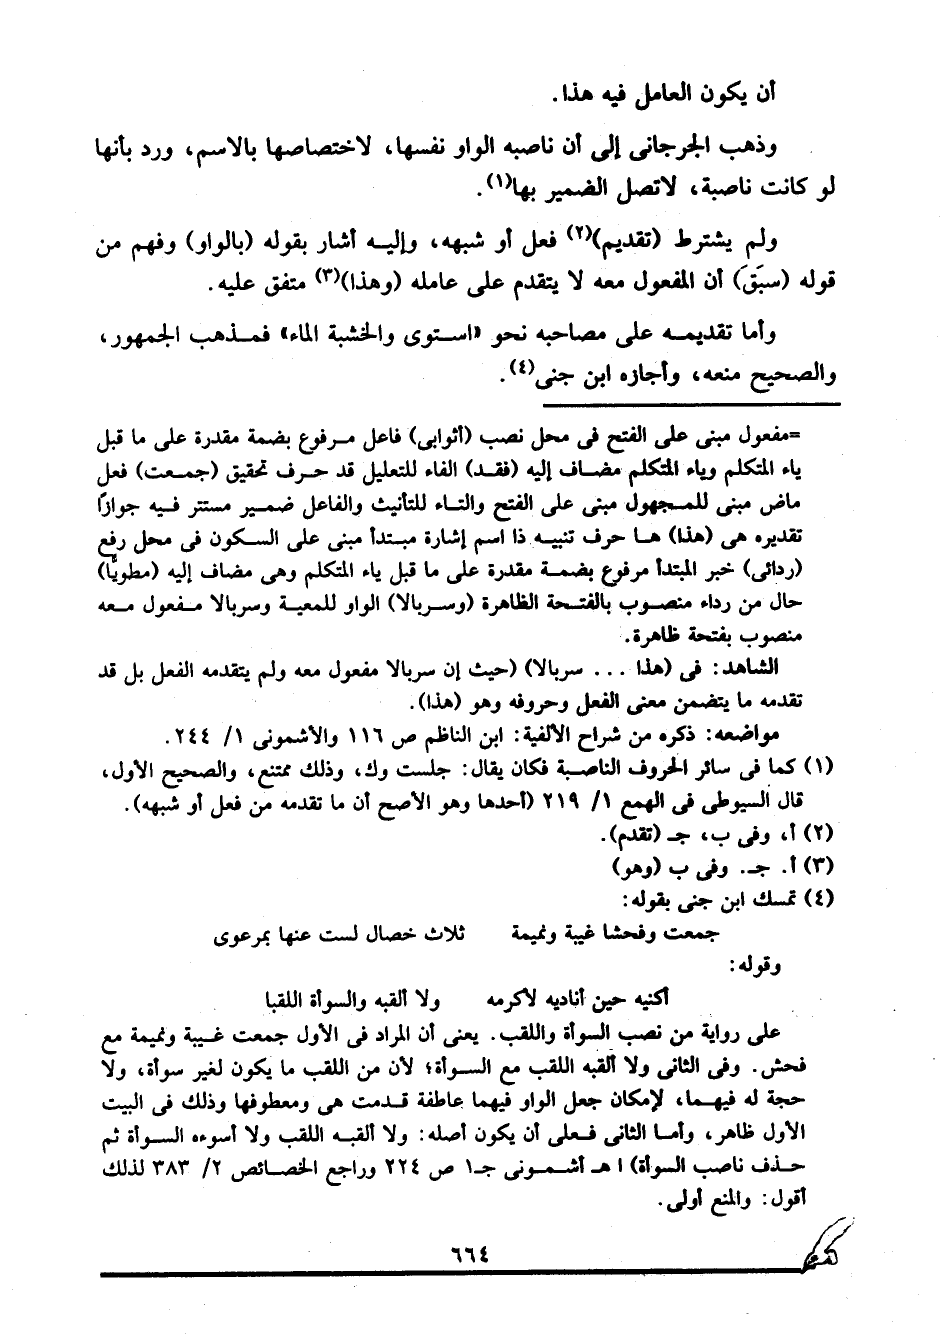 أن يكون العامل فيه هذا.
وذهب الجرجانى إلى أن ناصبه الواو نفسها، لاختصاصها بالاسم، ورد بأنها
لو كانت ناصبة، لاتصل الضمير بها(١).
ولم يشترط (تقديم)(٢) فعل أو شبهه، وإليه أشار بقوله (بالواو) وفهم من
قوله (سبَقَ) أن المفعول معه لا يتقدم على عامله (وهذا)(٣) متفق عليه.
وأما تقديمه على مصاحبه نحو «استوى والخشبة الماء» فمذهب الجمهور،
والصحيح منعه، وأجازه ابن جنى(٤).
=مفعول مبنى على الفتح فى محل نصب (أثوابى) فاعل مرفوع بضمة مقدرة على ما قبل
ياء المتكلم وياء المتكلم مضاف إليه (فقد) الفاء للتعليل قد حرف تحقيق (جمعت) فعل
ماض مبنى للمجهول مبنى على الفتح والتاء للتأنيث والفاعل ضمير مستتر فيه جوازًا
تقديره هى (هذا) ها حرف تنبيه ذا اسم إشارة مبتدأ مبنى على السكون فى محل رفع
(ردائى) خبر المبتدأ مرفوع بضمة مقدرة على ما قبل ياء المتكلم وهى مضاف إليه (مطويًّا)
حال من رداء منصوب بالفتحة الظاهرة (وسربالا) الواو للمعية وسربالا مفعول معه
منصوب بفتحة ظاهرة.
الشاهد: فى (هذا ... سربالا) (حيث إن سربالا مفعول معه ولم يتقدمه الفعل بل قد
تقدمه ما يتضمن معنى الفعل وحروفه وهو (هذا).
مواضعه: ذكره من شراح الألفية: ابن الناظم ص ١١٦ والأشمونى ١/ ٢٤٤.
(١) كما فى سائر الحروف الناصبة فكان يقال: جلست وك، وذلك ممتنع، والصحيح الأول،
قال السيوطى فى الهمع ١/ ٢١٩ (أحدها وهو الأصح أن ما تقدمه من فعل أو شبهه).
(٢) أ، وفى ب، جـ (تقدم).
(٣) أ. جـ. وفى ب (وهو)
(٤) تمسك ابن جنى بقوله:
جمعت وفحشا غيبة ونميمة ثلاث خصال لست عنها بمرعوى
وقوله:
أكنيه حين أناديه لأكرمه ولا ألقبه والسوأة اللقبا
على رواية من نصب السوأة واللقب. يعنى أن المراد فى الأول جمعت غيبة ونميمة مع
فحش. وفى الثانى ولا ألقبه اللقب مع السوأة؛ لأن من اللقب ما يكون لغير سوأة، ولا
حجة له فيهما، لإمكان جعل الواو فيهما عاطفة قدمت هى ومعطوفها وذلك فى البيت
الأول ظاهر، وأما الثانى فعلى أن يكون أصله: ولا ألقبه اللقب ولا أسوءه السوأة ثم
حذف ناصب السوأة) ا هـ أشمونى جـ١ ص ٢٢٤ وراجع الخصائص ٢/ ٣٨٣ لذلك
أقول: والمنع أولى.
٦٦٤